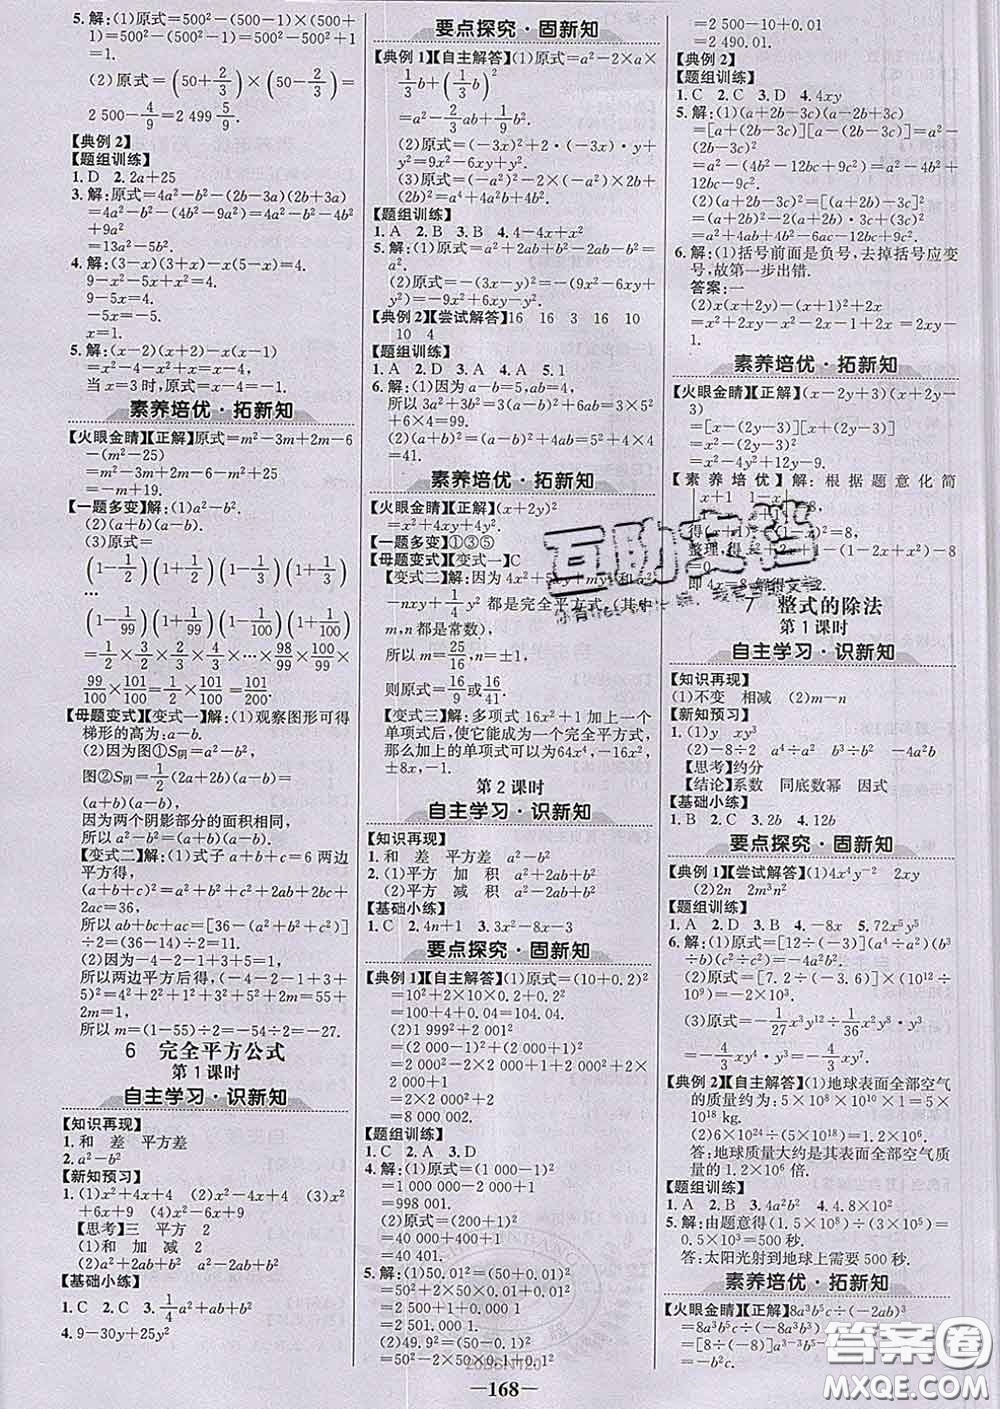 5.解:(1)原式=500²-(500-1)×(500+1)
=500²-(500²-1)=500²-500²+1
=1.
(2)原式=(50+2/3)×(50-2/3)=
2 500-4/9=2 499 5/9.
【典例2】
【题组训练】
1.D 2.2a+25
3.解:原式=4a²-b²-(2b-3a)(2b+3a)
=4a²-b²-(4b²-9a²)=4a²-b²-4b²
+9a²
=13a²-5b².
4.解:(3-x)(3+x)-x(5-x)=4.
9-x²-5x+x²=4.
9-5x=4.
-5x=-5.
x=1.
5.解:(x-2)(x+2)-x(x-1)
=x²-4-x²+x=x-4.
当x=3时,原式=x-4=-1.
素养培优·拓新知
【火眼金睛】【正解】原式=m²-3m+2m-6
-(m²-25)
=m²-3m+2m-6-m²+25
=-m+19.
【一题多变】解:(1)a²-b².
(2)(a+b)(a-b).
(3)原式=
(1-1/2)(1+1/2)(1-1/3)(1+1/3)
…(1-1/99)(1+1/99)(1-1/100)(1+1/100)
=1/2×3/2×2/3×4/3×…×98/99×100/99×
99/100×101/100=1/2×101/100=101/200.
【母题变式】【变式一】解:(1)观察图形可得
梯形的高为:a-b.
(2)因为图①S阴=a²-b²,
图②S阴=1/2(2a+2b)(a-b)=
(a+b)(a-b).
因为两个阴影部分的面积相同,
所以a²-b²=(a+b)(a-b).
【变式二】解:(1)式子a+b+c=6两边
平方得,
(a+b+c)²=a²+b²+c²+2ab+2bc+
2ac=36,
所以ab+bc+ac=[36-(a²+b²+c²)]
÷2=(36-18)÷2=9.
(2)因为-4-2-1+3+5=1,
所以两边平方后得,(-4-2-1+3+
5)²=(-4)²+(-2)²+(-1)²+3²+
5²+2m=16+4+1+9+25+2m=55+
2m=1,
所以m=(1-55)÷2=-54÷2=-27.
6 完全平方公式
第1课时
自主学习·识新知
【知识再现】
1.和 差 平方差
2.a²-b²
【新知预习】
1.(1)x²+4x+4 (2)x²-4x+4 (3)x²
+6x+9 (4)x²-6x+9
【思考】三 平方 2
(1)和 加 减 2
(2)a²+2ab+b² a²-2ab+b²
【基础小练】
1.C 2.C 3.1/4a²+ab+b²
4.9-30y+25y²
要点探究·固新知
【典例1】【自主解答】(1)原式=a²-2×a×
1/3b+(1/3b)²
=a²-2/3ab+1/9b².
(2)原式=(-3x)²+2×(-3x)·y+
y²=9x²-6xy+y².
(3)原式=(-a²)²-2×(-a²)×2b+
(2b)²=a⁴+4a²b+4b².
【题组训练】
1.A 2.B 3.B 4.4-4x+x²
5.解:(1)原式=a²+2ab+b²-2ab-b²
=a².
(2)原式=-(3x-y)²=-(9x²-6xy+
y²)=-9x²+6xy-y².
【典例2】【尝试解答】16 16 3 16 10
10 4
【题组训练】
1.D 2.D 3.A 4.A 5.1
6.解:(1)因为a-b=5,ab=4,
所以3a²+3b²=3(a-b)²+6ab=3×5²
+6×4=99.
(2)(a+b)²=(a-b)²+4ab=5²+4×4=
41.
素养培优·拓新知
【火眼金睛】【正解】(x+2y)²
=x²+4xy+4y².
【一题多变】①③⑤
【母题变式】【变式一】C
【变式二】解:因为4x²+5xy+my²和x²
-nxy+1/4y²都是完全平方式,(其中
m,n都是常数),
所以m=25/16,n=±1,
则原式=9/16或41/16.
【变式三】解:多项式16x²+1加上一个
单项式后,使它能成为一个完全平方式,
那么加上的单项式可以为64x⁴,-16x²,
±8x,-1.
第2课时
自主学习·识新知
【知识再现】
1.和 差 平方差 a²-b²
2.(1)平方 加 积 a²+2ab+b²
(2)平方 减 积 a²-2ab+b²
【基础小练】
1.C 2.4n+1 3.3x²-8x-3
要点探究·固新知
【典例1】【自主解答】(1)原式=(10+0.2)²
=10²+2×10×0.2+0.2²
=100+4+0.04=104.04.
(2)1 999²+2 001²
=(2 000-1)²+(2 000+1)²
=2 000²-2×2 000×1+1²+2 000²+2
×2 000×1+1²
=2×2 000²+2
=8 000 002.
【题组训练】
1.C 2.A 3.D
4.解:(1)原式=(1 000-1)²
=1 000²-2×1 000×1+1²
=998 001.
(2)原式=(200+1)²
=40 000+400+1
=40 401.
5.解:(1)50.01²=(50+0.01)²
=50²+2×50×0.01+0.01²
=2 500+1+0.000 1
=2 501.000 1.
(2)49.9²=(50-0.1)²
=50²-2×50×0.1+0.1²
=2 500-10+0.01
=2 490.01.
【典例2】
【题组训练】
1.C 2.C 3.D 4.4xy
5.解:(1)(a+2b-3c)(a-2b+3c)
=[a+(2b-3c)][a-(2b-3c)]
=a²-(2b-3c)²
=a²-(4b²-12bc+9c²)
=a²-4b²+12bc-9c².
(2)(a+2b-3c)²=[(a+2b)-3c]²
=(a+2b)²-2(a+2b)·3c+(3c)²
=a²+4ab+4b²-6ac-12bc+9c².
6.解:(1)括号前面是负号,去掉括号应变
号,故第一步出错.
答案:一
(2)x(x+2y)-(x+1)²+2x
=x²+2xy-x²-2x-1+2x=2xy-
1.
素养培优·拓新知
【火眼金睛】【正解】(x-2y+3)(x+2y-
3)
=[x-(2y-3)][x+(2y-3)]
=x²-(2y-3)²
=x²-4y²+12y-9.
【素养培优】解:根据题意化简
|x+1 1-x|
得(x+1)²-(1-x)²=8,
整理,得
=0,
即4x=8,解得x=2.
7 整式的除法
第1课时
自主学习·识新知
【知识再现】
(1)不变 相减 (2)m-n
【新知预习】
1.(1)y xy³
(2)-8÷2 a⁴÷a² b³÷b² -4a²b
【思考】约分
【结论】系数 同底数幂 因式
【基础小练】
1.B 2.C 3.2b 4.12b
要点探究·固新知
【典例1】【尝试解答】(1)4x⁴y⁻² 2xy
(2)2n 2m³n²
【题组训练】
1.A 2.D 3.B 4.-8x 5.72x⁵y⁵
6.解:(1)原式=[12÷(-3)](a⁴÷a²)(b³
÷b²)(c²÷c²)=-4a²b.
(2)原式=[7.2÷(-3.6)]×(10¹²÷
10⁹)=-2×10³.
(3)原式=-1/27x³y³÷1/36x²y·x²y=
-4/3xy²·x²y=-4/3x³y³.
【典例2】【自主解答】(1)地球表面全部空气
的质量约为:5×10⁸×1×10¹⁰=5×
10¹⁸ kg.
(2)6×10²⁴÷(5×10¹⁸)=1.2×10⁶.
答:地球质量大约是其表面全部空气质
量的1.2×10⁶倍.
【题组训练】
1.A 2.B 3.4a²b² 4.8×10²
5.解:由题意得(1.5×10⁸)÷(3×10⁵)=
0.5×10³=500(秒).
答:太阳光射到地球上需要500秒.
素养培优·拓新知
【火眼金睛】【正解】8a³b⁵c÷(-2ab)³
=8a³b⁵c÷(-8a³b³)
=-b²c.
互助文档
—168—
答案圈
MXQE.COM